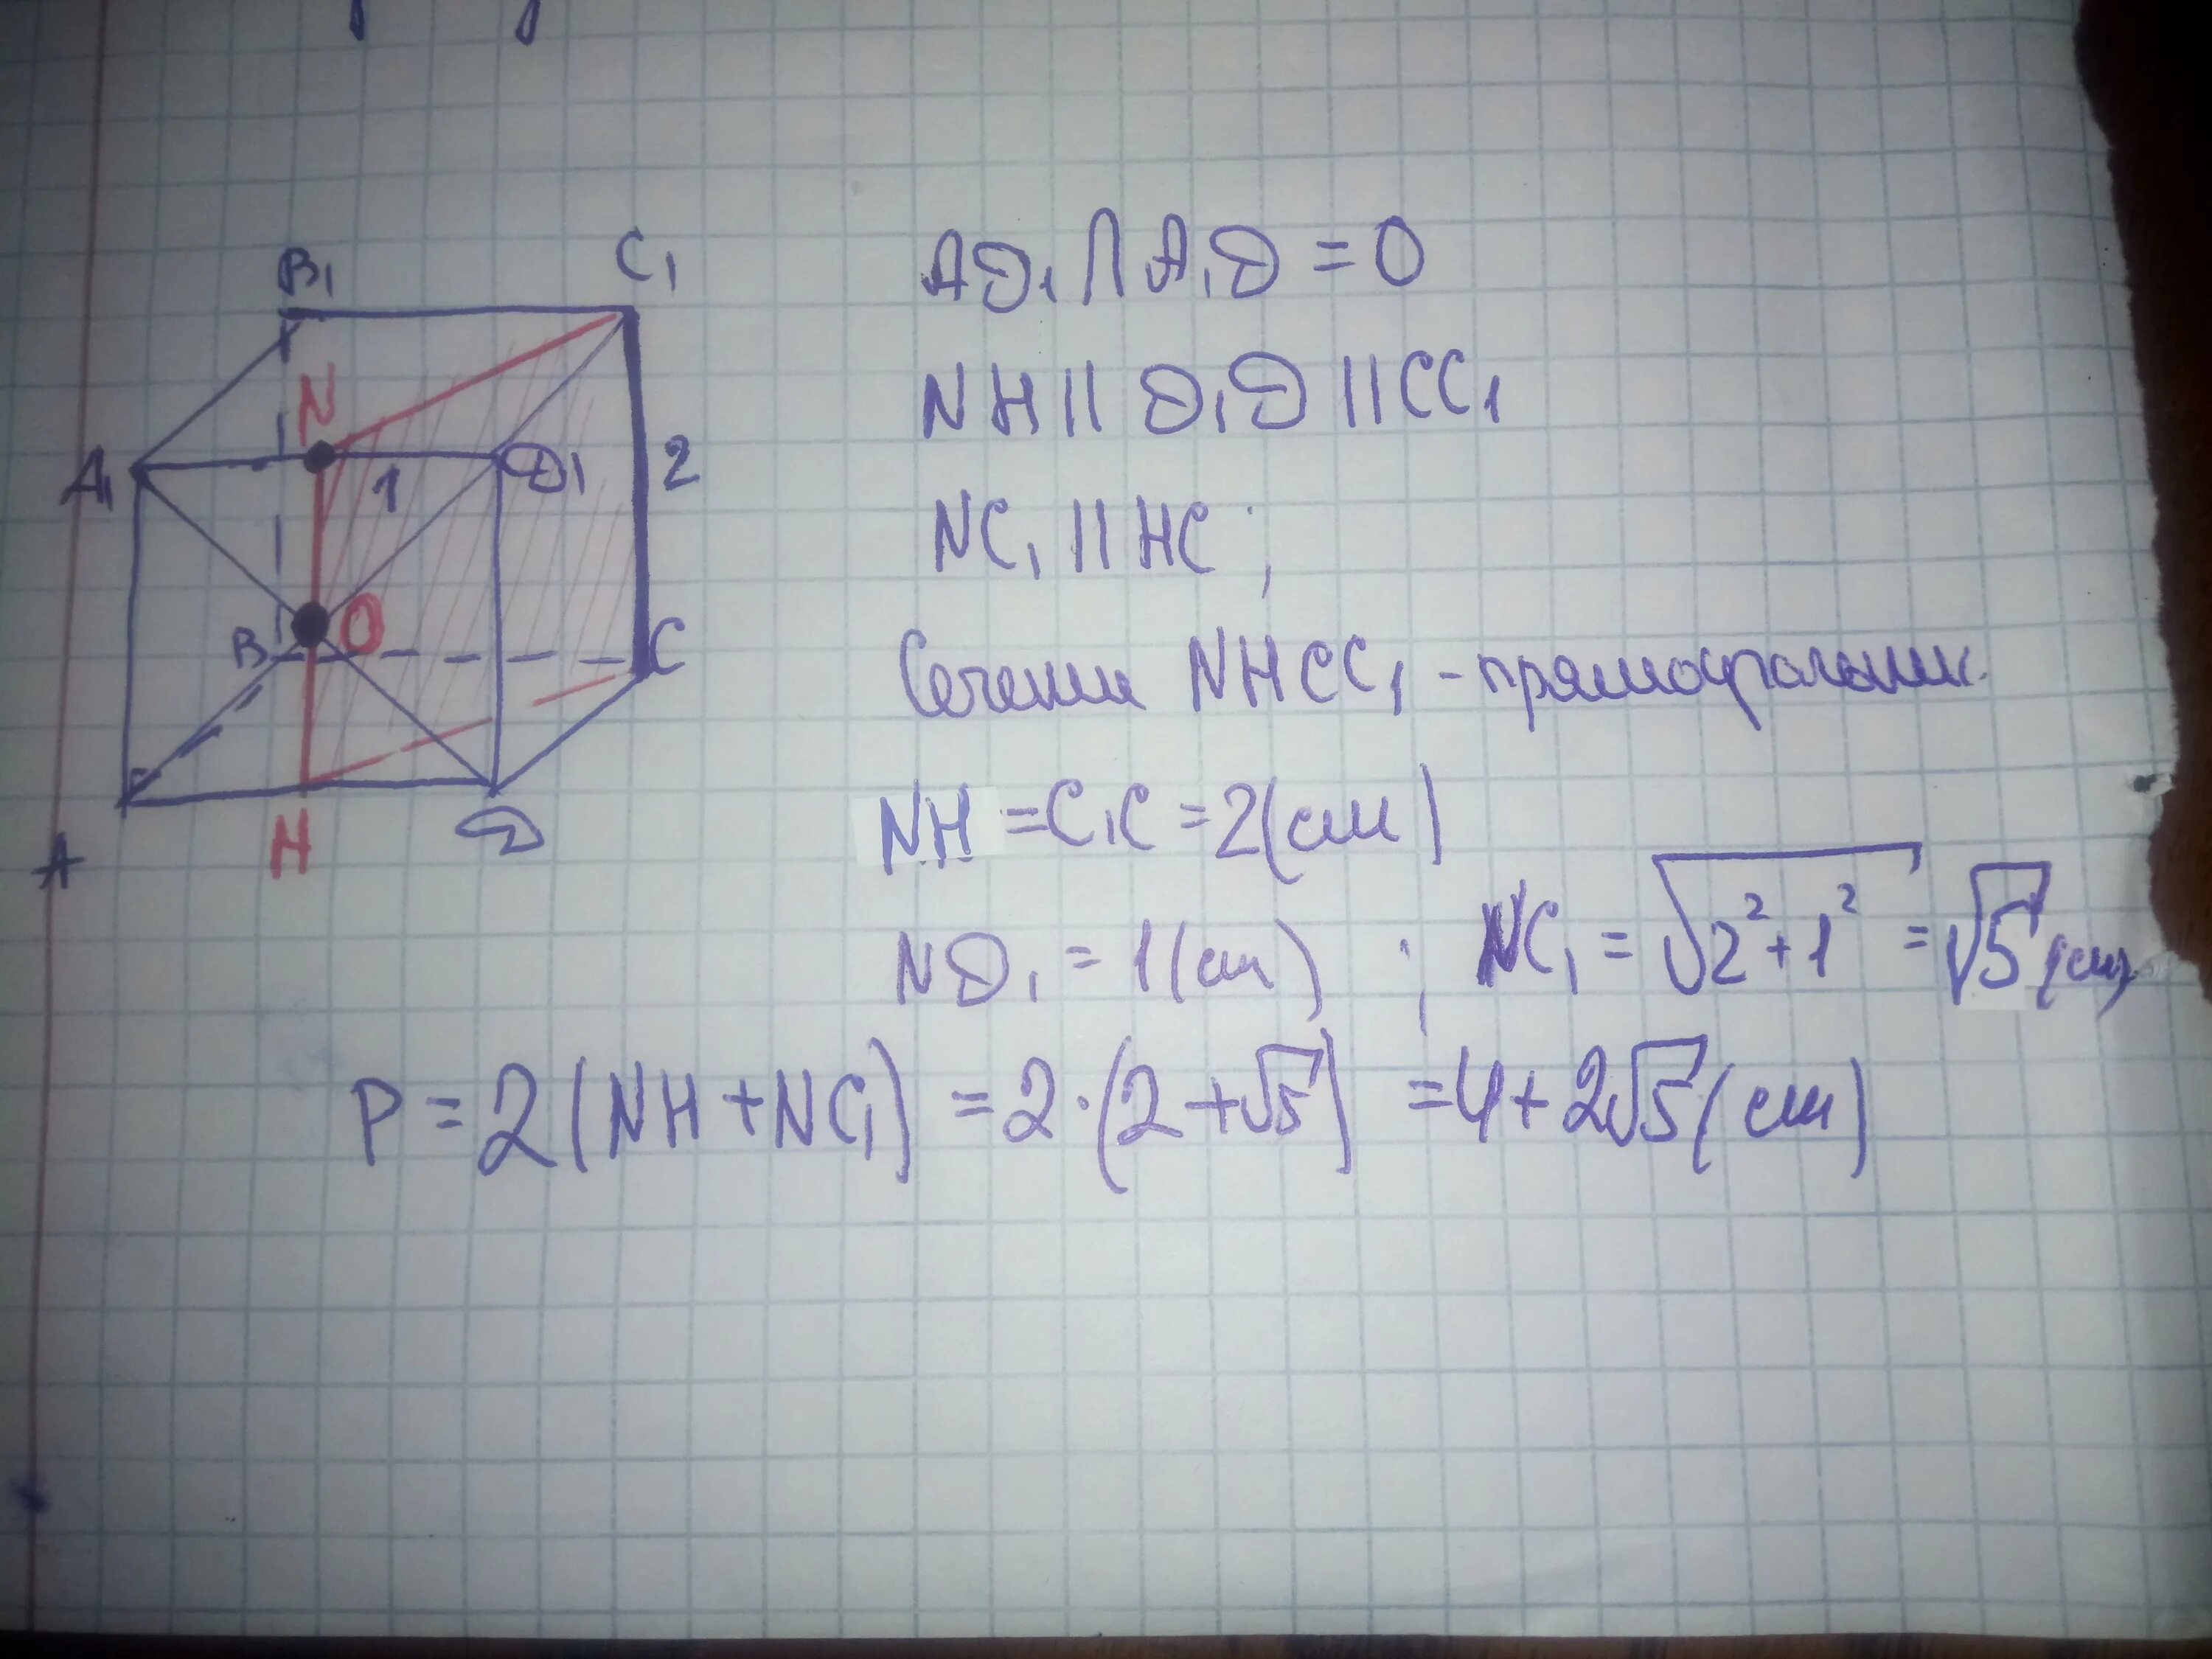 B₁ C₁
N
A₁ 1 D₁ 2
B O C
A H D
AD₁ ∩ A₁D = O
NH || D₁D || CC₁
NC₁ || HC ;
Сечение NHCC₁ - прямоугольник.
NH = C₁C = 2 (см)
ND₁ = 1 (см) ; NC₁ = √(2² + 1²) = √5 (см)
P = 2(NH + NC₁) = 2·(2 + √5) = 4 + 2√5 (см)